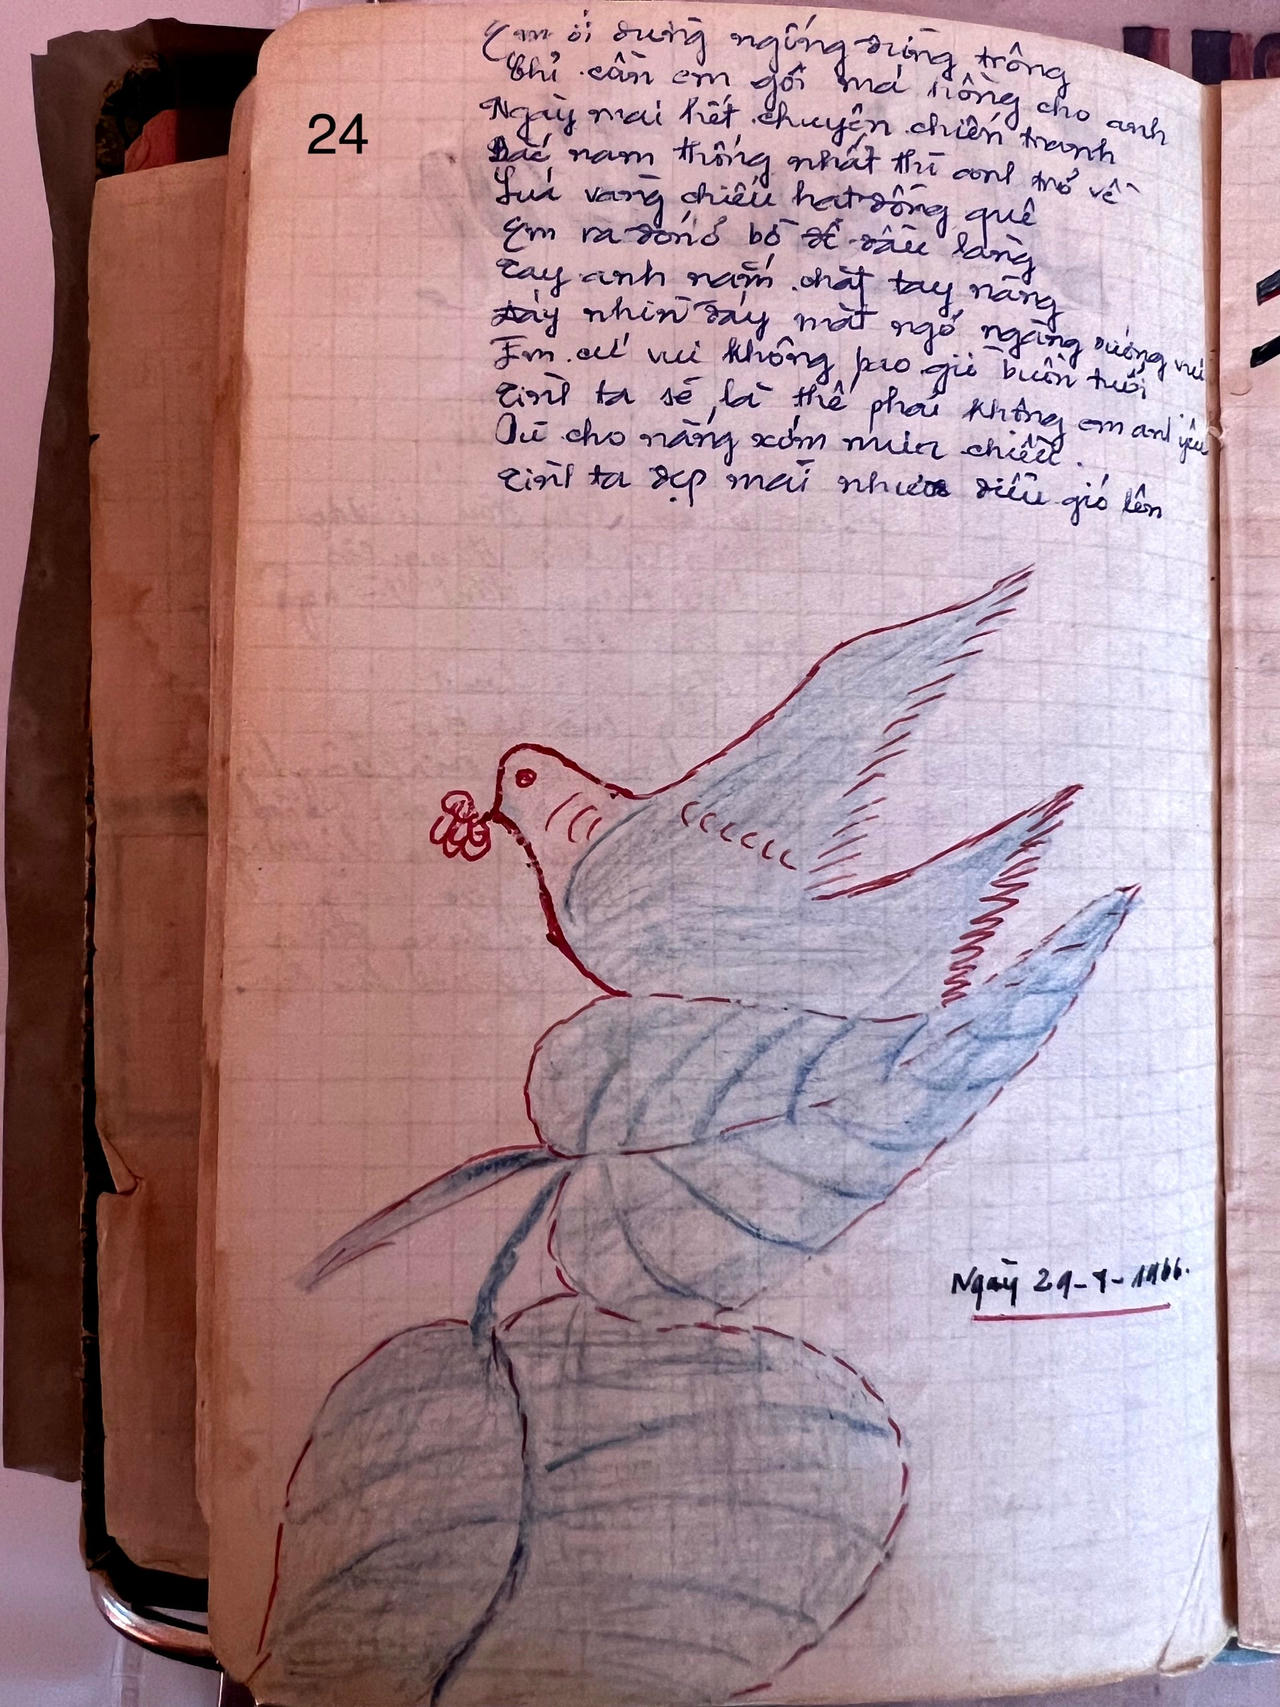 24
Em ơi đừng ngóng đừng trông
Chỉ cần em gối má hồng cho anh
Ngày mai hết chuyện chiến tranh
Bắc nam thống nhất thì anh trở về
Lúa vàng chiếu hạt đồng quê
Em ra đón ở bờ đê đầu làng
Tay anh nắm chặt tay nàng
Đây nhìn đấy mắt ngỡ ngàng sướng vui
Em cứ vui không bao giờ buồn tuổi
Tình ta sẽ là thế phải không em anh yêu
Dù cho nắng xớm mưa chiều.
Tình ta đẹp mãi như diều gió lên
Ngày 29-8-1966.